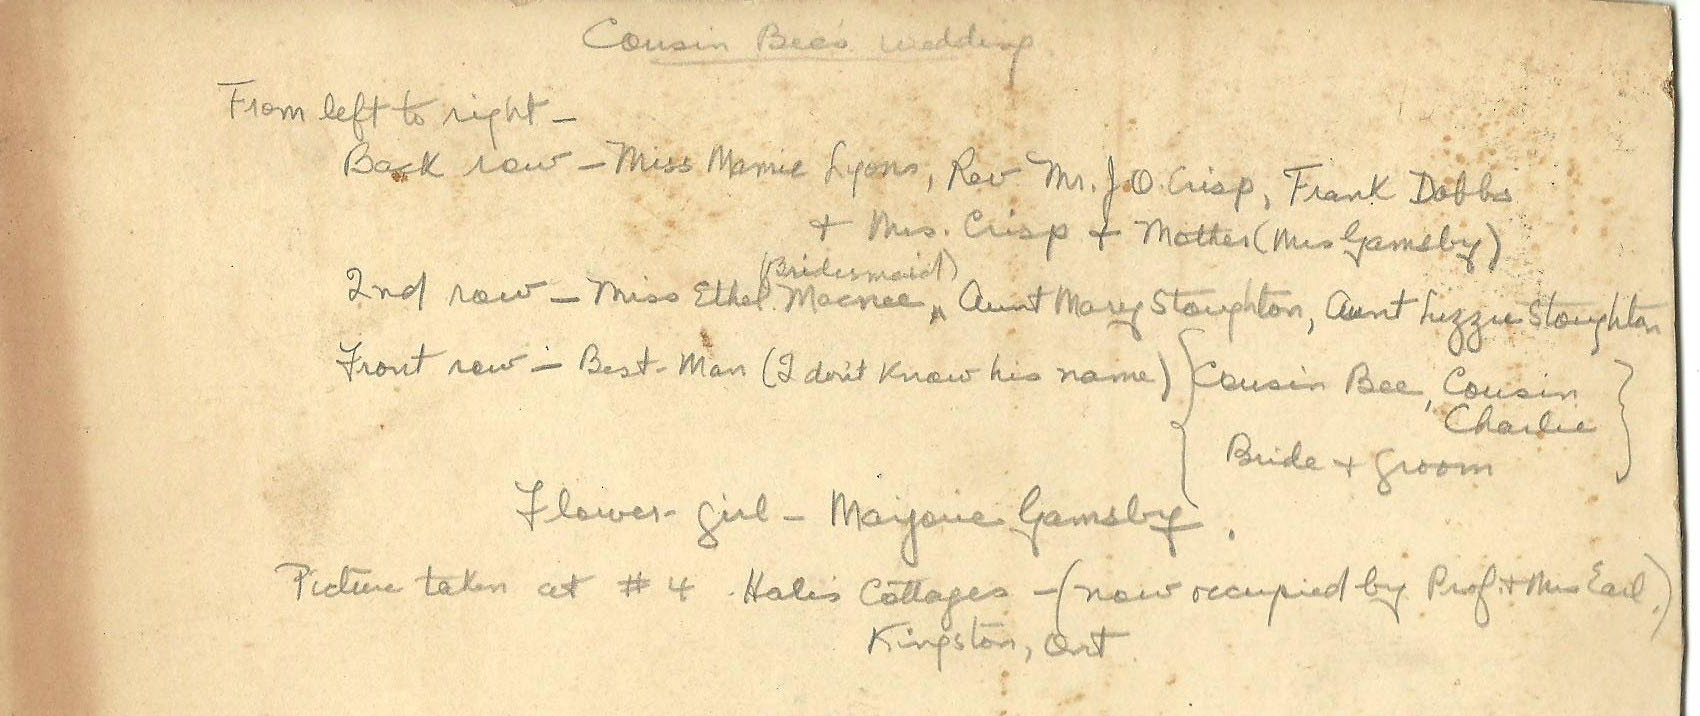 Cousin Bee's wedding
From left to right -
Back row - Miss Mamie Lyons, Rev Mr. J. O. Crisp, Frank Dobbs
+ Mrs. Crisp + Mother (Mrs Gamsby)
(Bridesmaid)
2nd row - Miss Ethel Macnee, Aunt Mary Stoughton, Aunt Lizzie Stoughton
Front row - Best-Man (I don't know his name) { Cousin Bee, Cousin
Charlie }
Bride + groom
Flower-girl - Marjorie Gamsby.
Picture taken at # 4 Hales Cottages - (now occupied by Prof. + Mrs Earl.)
Kingston, Ont